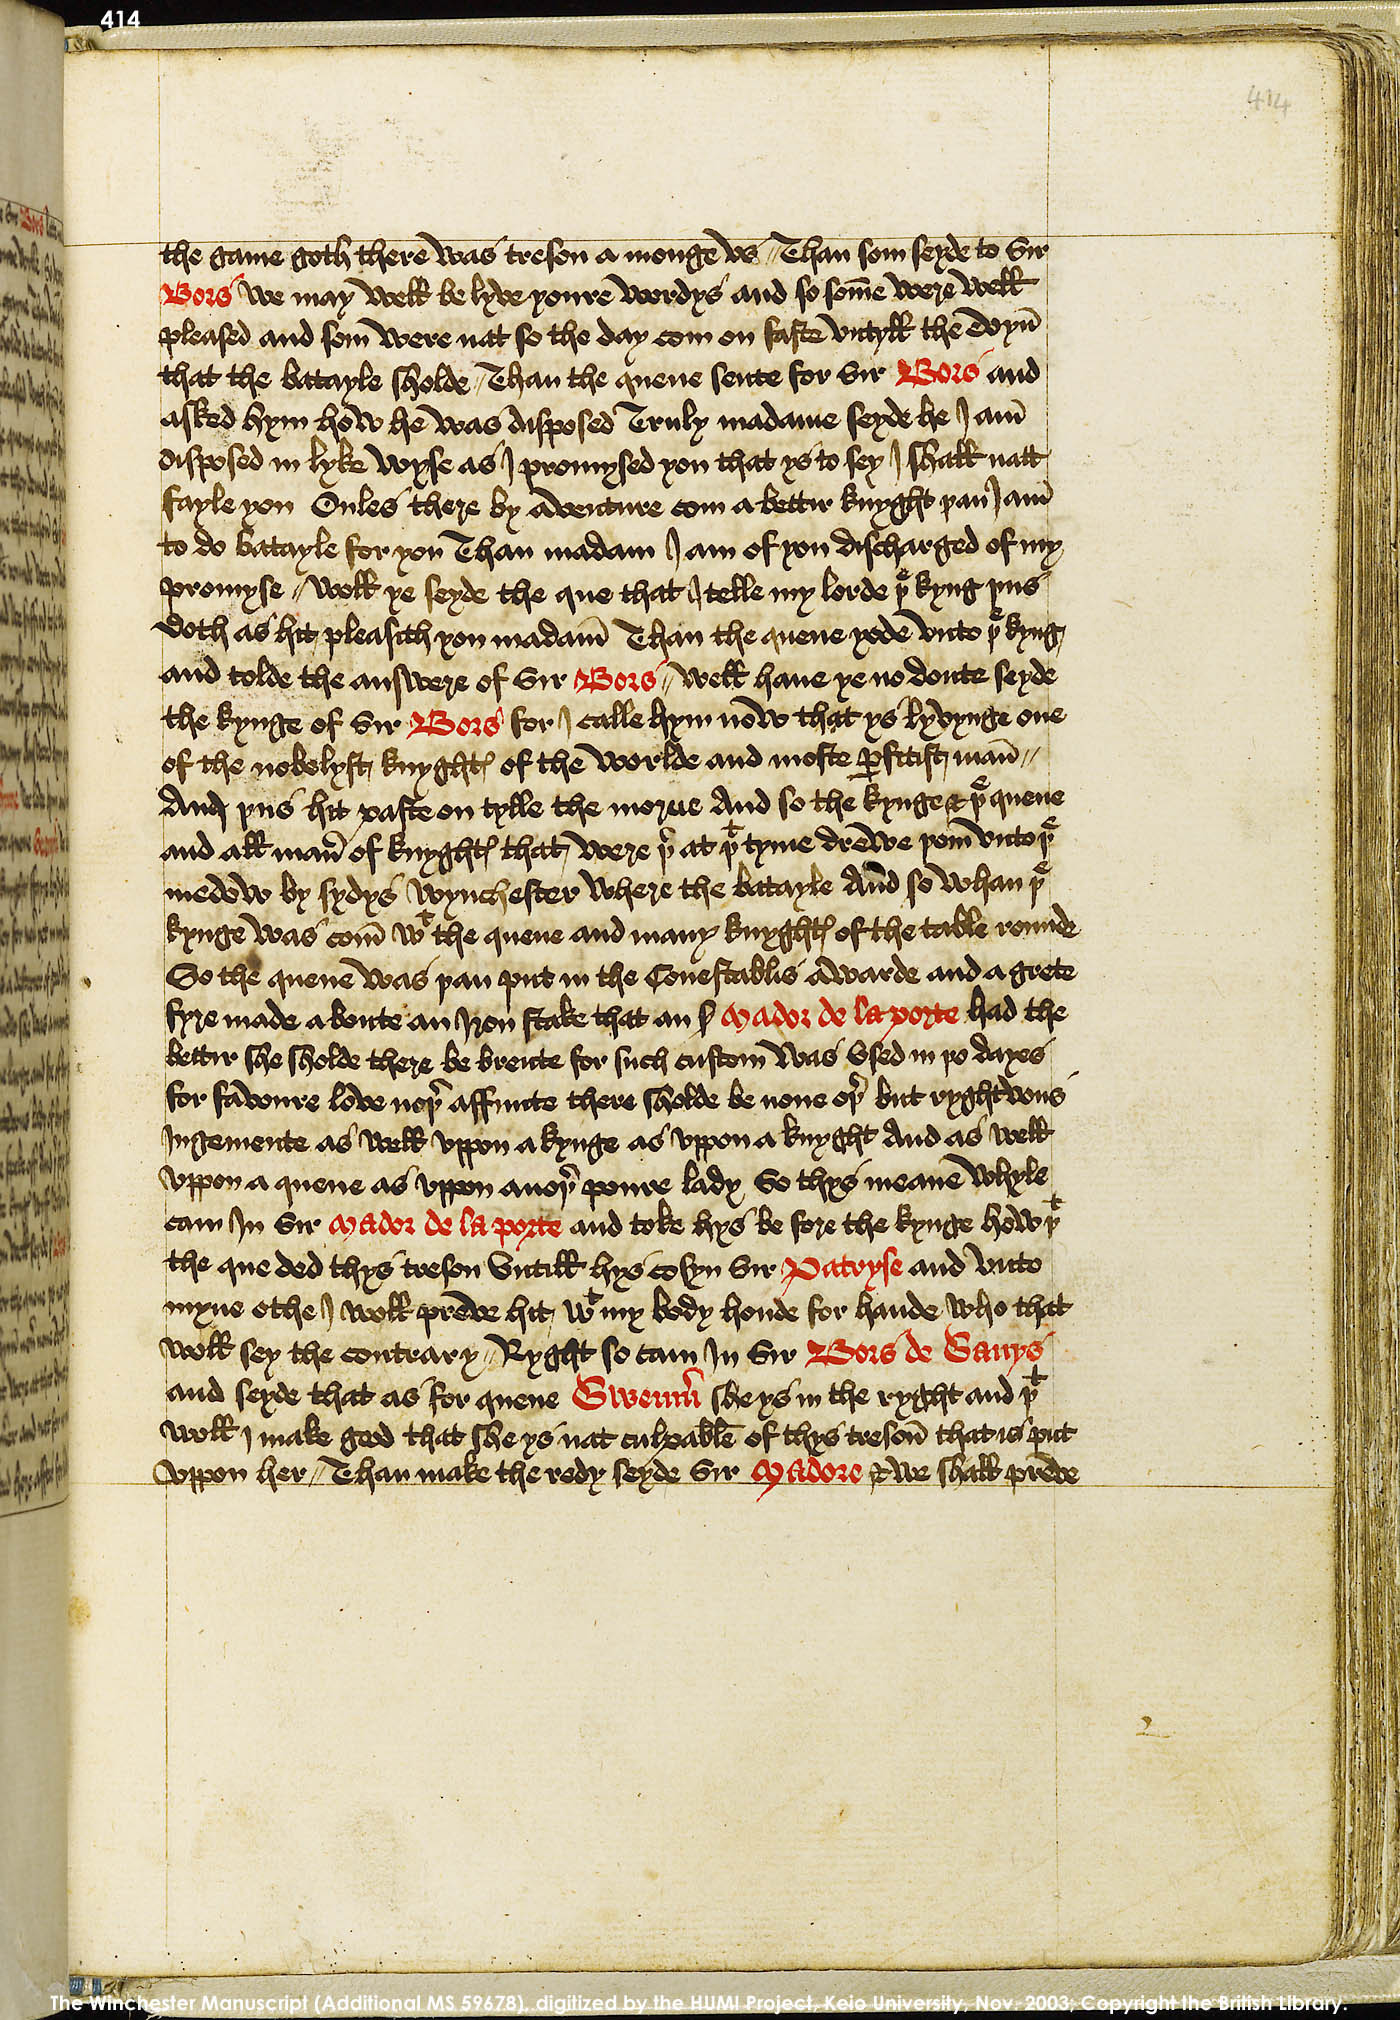 414
414
the game goth there was treson a monge vs // Than som seyde to Sir
Bors we may well be lyve youre wordys and so som̄e were well
pleased and som̄ were nat so the day com on faste vntyll the evyn̄
that the batayle sholde // Than the quene sente for Sir Bors and
asked hym how he was disposed Truly madame seyde he I am̄
disposed in lyke wyse as I promysed you that ys to sey I shall natt
fayle you Onles there by aventure com a bettir knyght þan I am̄
to do batayle for you Than madam I am of you discharged of my
promyse // Woll ye seyde the que that I telle my lorde þͤ kyng þus
doth as hit pleasith you madam̄ Than the quene yode vnto þͤ kyng
and tolde the answere of Sir Bors // Well haue ye no doute seyde
the kynge of Sir Bors for I calle hym now that ys lyvynge one
of the nobelyst knyghtꝭ of the worlde and moste ꝑfitist man̄ //
And þus hit paste on tylle the morne And so the kynge & þͤ quene
and all man̄ of knyghtꝭ that were þʳ at þᵗ tyme drewe þom̄ vnto þͤ
medow by sydys Wynchester where the batayle And so whan þͤ
kynge was com̄ wᵗ the quene and many knyghtꝭ of the table rounde
So the quene was þan put in the Conestablis awarde and a grete
fyre made a boute an Iron stake that an sʳ Mador de la porte had the
bettir she sholde there be brente for such custom was vsed in þo dayes
for favoure love noþʳ affinite there sholde be none oþʳ but ryghtwus
Iugemente as well vppon a kynge as vppon a knyght And as well
vppon a quene as vppon anoþʳ poure lady So thys meane whyle
cam In Sir Mador de la porte and toke hys be fore the kynge how þᵗ
the que ded thys treson vntill hys cosyn Sir Patryse and vnto
myne othe I woll preve hit wᵗ my body honde for hande who that
woll sey the contrary // Ryght so cam In Sir Bors de Ganys
and seyde that as for quene Gwenn̄ she ys in the ryght and þᵗ
woll I make good that she ys nat culpable of thys treson̄ that is put
vppon her // Than make the redy seyde Sir Madore & we shall preve
2
The Winchester Manuscript (Additional MS 59678), digitized by the HUMI Project, Keio University, Nov. 2003; Copyright the British Library.